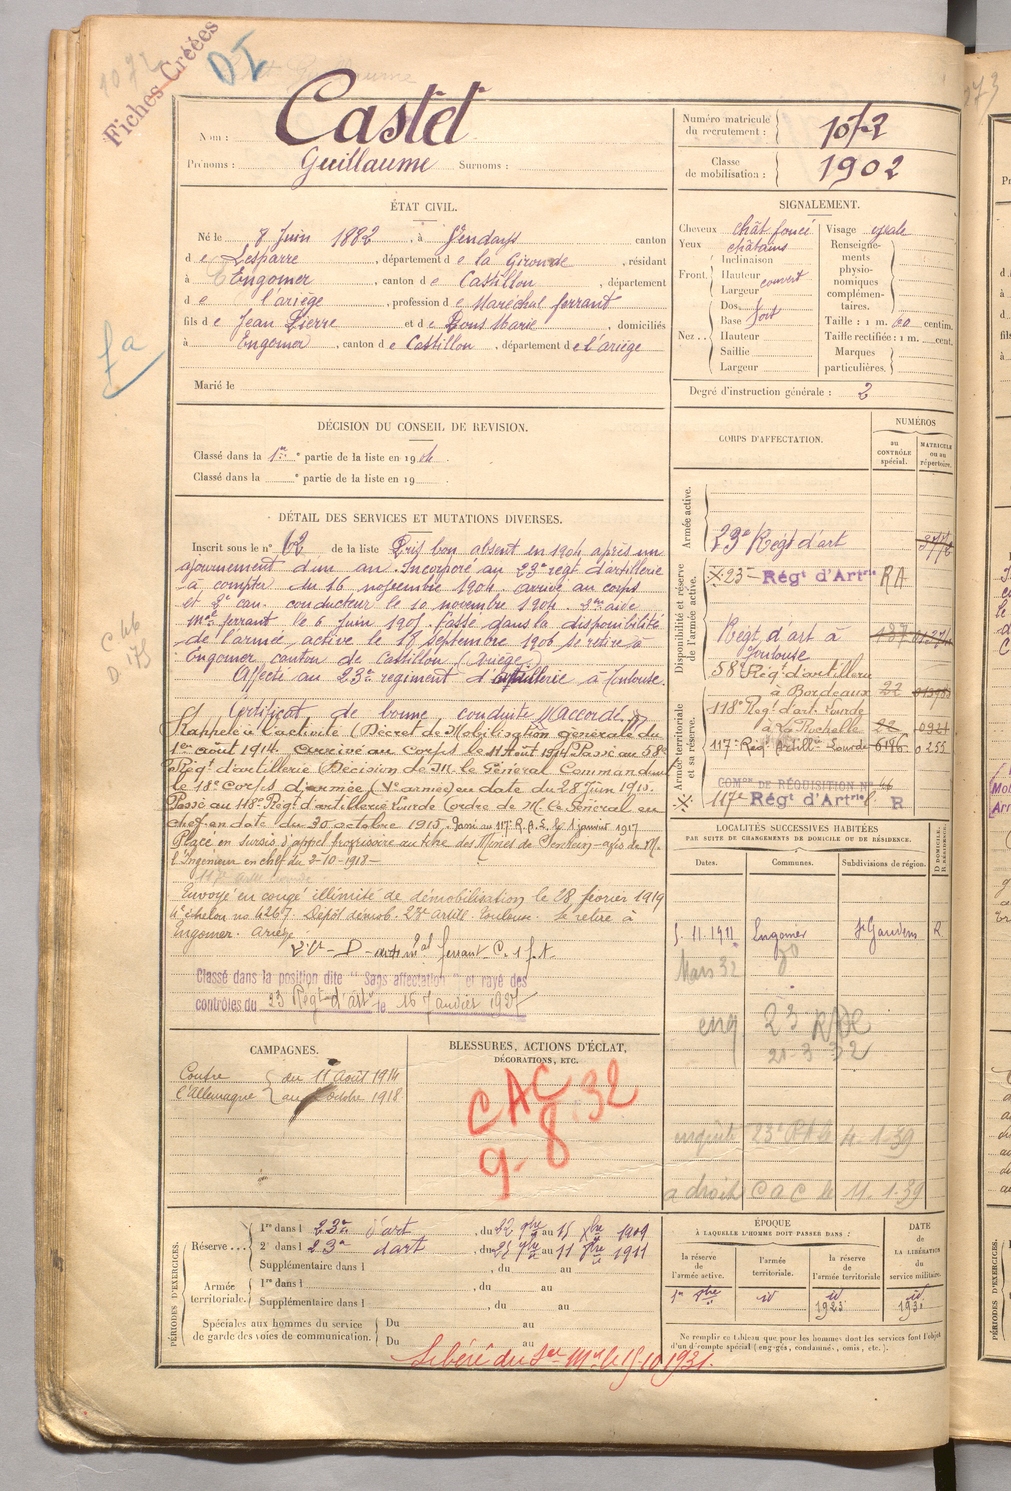 1072
Fiches Créées
DI
Nom : Castet
Prénoms : Guillaume Surnoms :
Numéro matricule du recrutement : 1072
Classe de mobilisation : 1902
ÉTAT CIVIL.
Né le 8 Juin 1882, à Vendays canton
de Lesparre, département de la Gironde, résidant
à Engomer, canton de Castillon, département
de l'ariège, profession de Maréchal ferrant
fils de Jean Pierre et de Bons Marie, domiciliés
à Engomer, canton de Castillon, département de l'ariège
Marié le
fa
SIGNALEMENT.
Cheveux chât foncé
Yeux châtains
Front. Inclinaison
Hauteur
Largeur couvert
Nez. Dos.
Base fort
Hauteur
Saillie
Largeur
Visage ovale
Renseignements physionomiques complémentaires.
Taille : 1 m. 60 centim.
Taille rectifiée : 1 m. cent.
Marques particulières.
Degré d'instruction générale : 2
DÉCISION DU CONSEIL DE REVISION.
Classé dans la 1re partie de la liste en 1904.
Classé dans la e partie de la liste en 19
DÉTAIL DES SERVICES ET MUTATIONS DIVERSES.
Inscrit sous le n° 62 de la liste Pris bon absent en 1904 après un
ajournement d'un an. Incorporé au 23e régt d'artillerie
à compter du 16 novembre 1904. arrivé au corps
et 2e can. conducteur le 10 novembre 1904. aide
Mal ferrant le 6 Juin 1905. Passé dans la disponibilité
de l'armée active le 18 septembre 1906 se retire à
Engomer canton de Castillon (Ariège)
Affecté au 23e régiment d'artillerie à Toulouse.
Certificat de bonne conduite "Accordé"
Rappelé à l'activité (Décret de Mobilisation générale du
1er août 1914. Arrivé au corps le 11 Août 1914. Passé au 58e
Régt d'artillerie (Décision de M. le Général Commandant
le 18e Corps d'armée (Ve armée) en date du 28 Juin 1915.
Passé au 118e Régt d'artillerie lourde (ordre de M. le Général en
chef en date du 30 octobre 1915. Passé au 117e R.A.L. le 1 janvier 1917
Placé en sursis d'appel provisoire au titre des Mines de Sentein - avis de M.
l'Ingénieur en chef du 2-10-1918 -
Envoyé en congé illimité de démobilisation le 28 février 1919
4e échelon no 4267. Dépôt démob. 23e artilie Toulouse. Se retire à
Engomer. Ariège
Mal ferrant
Classé dans la position dite "Sans affectation" et rayé des
contrôles du 23 Régt d'art le 15 Janvier 1927
C 46
D 175
CORPS D'AFFECTATION.
NUMÉROS
au contrôle spécial.
matricule ou au répertoire.
Armée active.
23e Régt d'art
Disponibilité et réserve de l'armée active.
23e Régt d'Artrie RA
Régt d'art à Toulouse
58e Régt d'artillerie
à Bordeaux 22
Armée territoriale et sa réserve.
118e Régt d'art. lourde
à La Rochelle 22
117e Rég. Artill. Lourde 0255
COMon DE RÉQUISITION N° 46
117e Régt d'Artrie R
LOCALITÉS SUCCESSIVES HABITÉES
PAR SUITE DE CHANGEMENTS DE DOMICILE OU DE RÉSIDENCE.
Dates. Communes. Subdivisions de région. D DOMICILE. R RÉSIDENCE.
5.11.1911 Engomer St Gaudens R
Mars 32
enq 23 RAC
21-3-32
enquête 23e RAD 4-1-39
a droit CAC le 11.1.39
CAMPAGNES.
Contre l'Allemagne du 11 août 1914
au 2 octobre 1918
BLESSURES, ACTIONS D'ÉCLAT,
DÉCORATIONS, ETC.
CAC
9-8-32
PÉRIODES D'EXERCICES.
Réserve... 1re dans l 23e d'art, du 22 9bre au 15 Xbre 1909
2e dans l 23e dart, du 25 au 11 1911
Supplémentaire dans l , du au
Armée territoriale. 1re dans l , du au
Supplémentaire dans l , du au
Spéciales aux hommes du service de garde des voies de communication. Du au
Du au
ÉPOQUE
À LAQUELLE L'HOMME DOIT PASSER DANS :
la réserve de l'armée active.
l'armée territoriale.
la réserve de l'armée territoriale
DATE de LA LIBÉRATION du service militaire.
1er 8bre id id 1923 id 1931
Ne remplir ce tableau que pour les hommes dont les services font l'objet
d'un décompte spécial (engagés, condamnés, omis, etc.).
Libéré du Ser Mre le 15-10-1931.